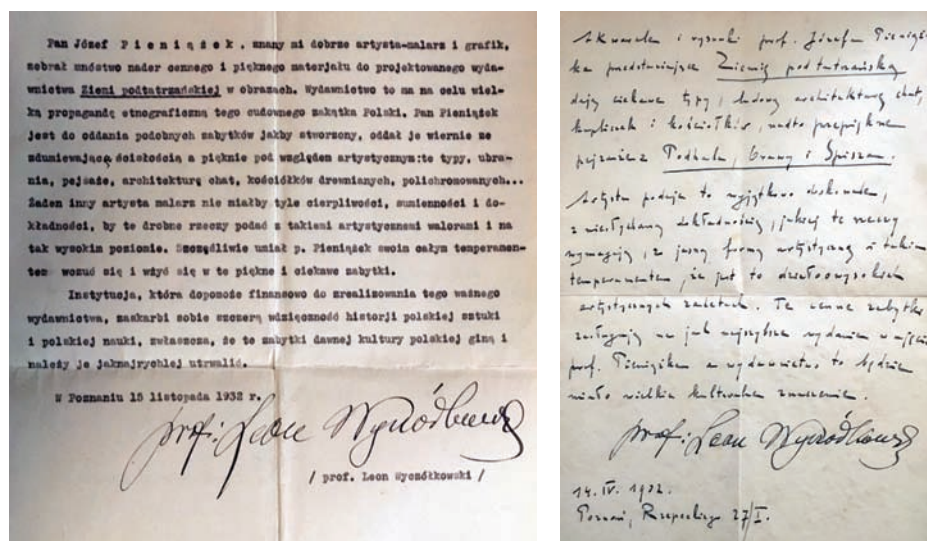 Pan Józef Pieniążek, znany mi dobrze artysta-malarz i grafik,
zebrał mnóstwo nader cennego i pięknego materjału do projektowanego wyda-
wnictwa Ziemi podtatrzańskiej w obrazach. Wydawnictwo to ma na celu wiel-
ką propagandę etnograficzną tego cudownego zakątka Polski. Pan Pieniążek
jest do oddania podobnych zabytków jakby stworzony, oddał je wiernie ze
zdumiewającą ścisłością a pięknie pod względem artystycznym:te typy, ubra-
nia, pejzaże, architekturę chat, kościółków drewnianych, polichromowanych...
Żaden inny artysta malarz nie miałby tyle cierpliwości, sumienności i do-
kładności, by te drobne rzeczy podać z takiemi artystycznemi walorami i na
tak wysokim poziomie. Szczęśliwie umiał p. Pieniążek swoim całym temperamen-
tem wczuć się i wżyć się w te piękne i ciekawe zabytki.
Instytucja, która dopomoże finansowo do zrealizowania tego ważnego
wydawnictwa, zaskarbi sobie szczerą wdzięczność historji polskiej sztuki
i polskiej nauki, zwłaszcza, że te zabytki dawnej kultury polskiej giną i
należy je jaknajrychlej utrwalić.
W Poznaniu 15 listopada 1932 r.
prof: Leon Wyczółkowski
/ prof. Leon Wyczółkowski /
Akwarele i rysunki prof. Józefa Pieniąż-
ka przedstawiające Ziemię podtatrzańską
dają ciekawe typy, ludową architekturę chat,
kapliczek i kościołków, nadto przepiękne
pejzaże z Podhala, Orawy i Spiszu.
Artysta podaje to wyjątkowo doskonale,
z niesłychaną dokładnością, jakiej te rzeczy
wymagają, z jasną formą artystyczną i takim
temperamentem, że jest to dzieło o wysokich
artystycznych zaletach. Te cenne zabytki
zasługują na jak najszybsze wydanie w ujęciu
prof. Pieniążka a wydawnictwo to będzie
miało wielkie kulturalne znaczenie.
prof: Leon Wyczółkowski
14. IV. 1932.
Poznań, Rzepeckiego 27/I.